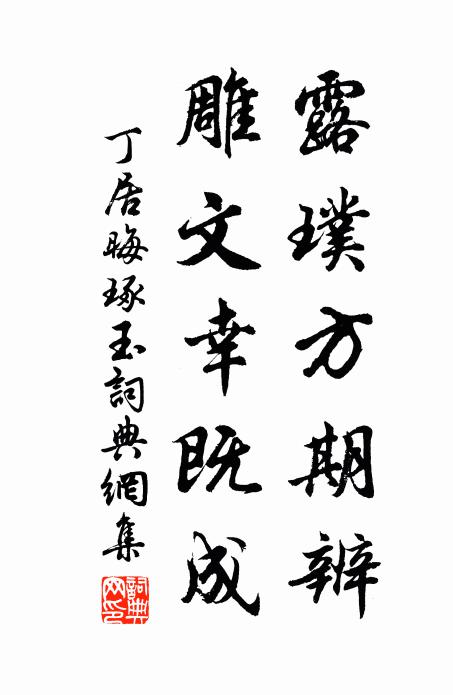 露璞方期辨
雕文幸既成
丁居晦琢玉詞典網集
詞典網印